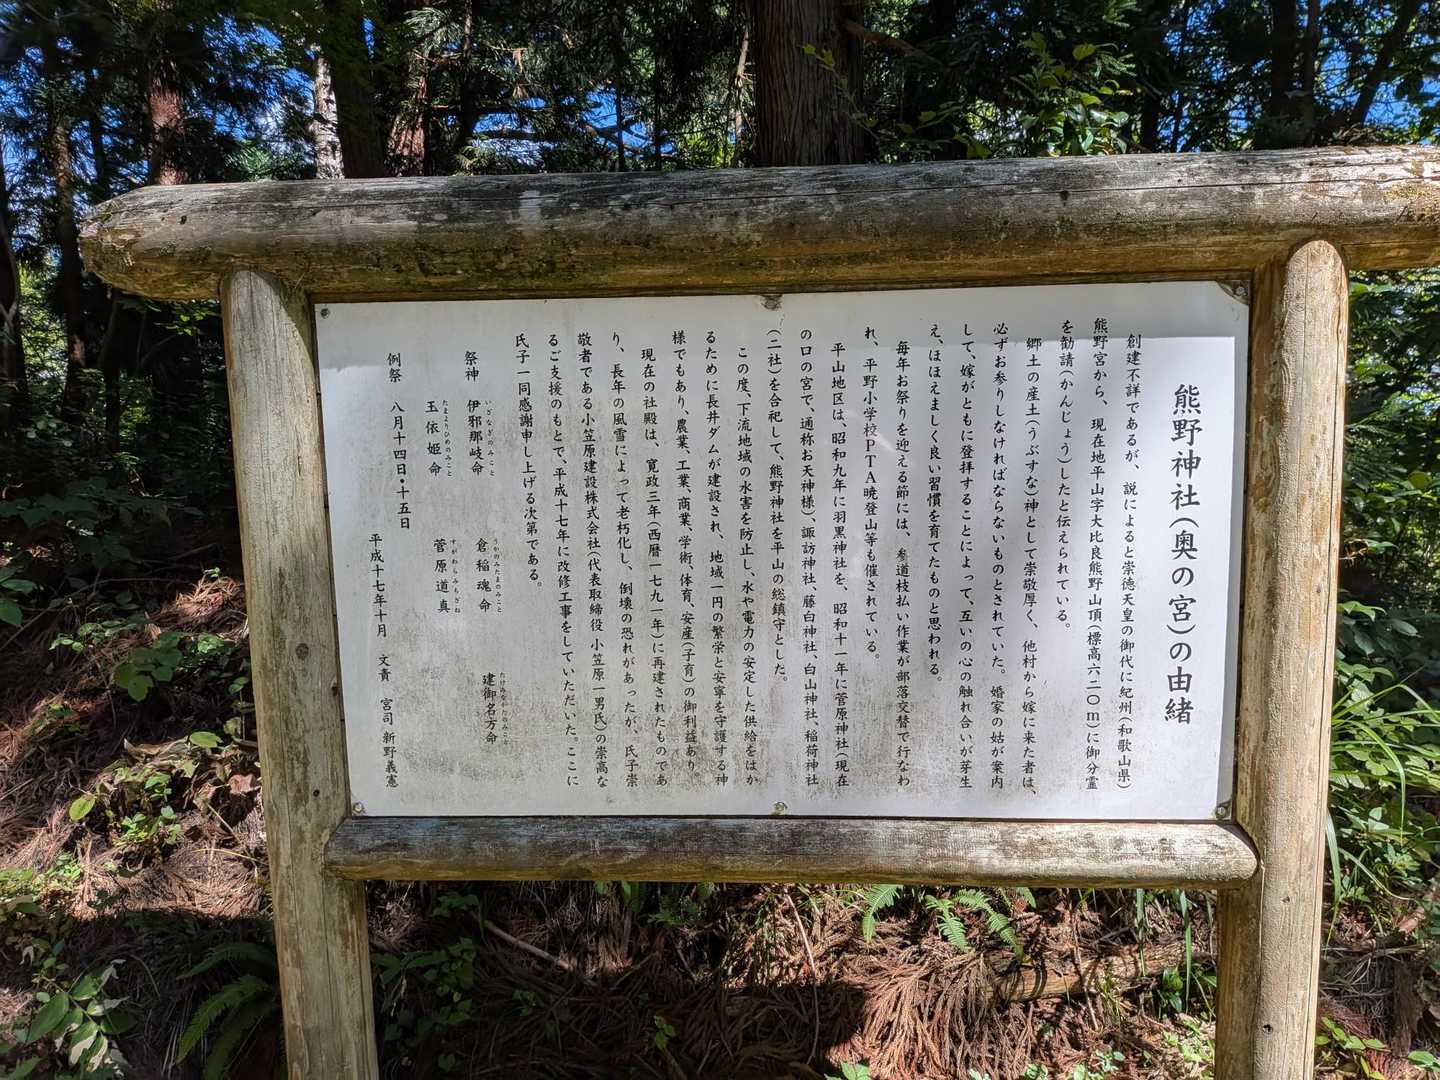 熊野神社(奥の宮)の由緒
創建不詳であるが、説によると崇徳天皇の御代に紀州(和歌山県)
熊野宮から、現在地平山字大比良熊野山頂(標高六二〇m)に御分霊
を勧請(かんじょう)したと伝えられている。
郷土の産土(うぶすな)神として崇敬厚く、他村から嫁に来た者は、
必ずお参りしなければならないものとされていた。婚家の姑が案内
して、嫁がともに登拝することによって、互いの心の触れ合いが芽生
え、ほほえましく良い習慣を育てたものと思われる。
毎年お祭りを迎える節には、参道枝払い作業が部落交替で行なわ
れ、平野小学校PTA暁登山等も催されている。
平山地区は、昭和九年に羽黒神社を、昭和十一年に菅原神社(現在
の口の宮で、通称お天神様)、諏訪神社、藤白神社、白山神社、稲荷神社
(二社)を合祀して、熊野神社を平山の総鎮守とした。
この度、下流地域の水害を防止し、水や電力の安定した供給をはか
るために長井ダムが建設され、地域一円の繁栄と安寧を守護する神
様でもあり、農業、工業、商業、学術、体育、安産(子育)の御利益あり。
現在の社殿は、寛政三年(西暦一七九一年)に再建されたものであ
り、長年の風雪によって老朽化し、倒壊の恐れがあったが、氏子崇
敬者である小笠原建設株式会社(代表取締役 小笠原一男氏)の崇高な
るご支援のもとで、平成十七年に改修工事をしていただいた。ここに
氏子一同感謝申し上げる次第である。
祭神 伊邪那岐命 いざなぎのみこと 倉稲魂命 うかのみたまのみこと 建御名方命 たけみなかたのみこと
玉依姫命 たまよりひめのみこと 菅原道真 すがわらみちざね
例祭 八月十四日・十五日
平成十七年十月 文責 宮司 新野義憲